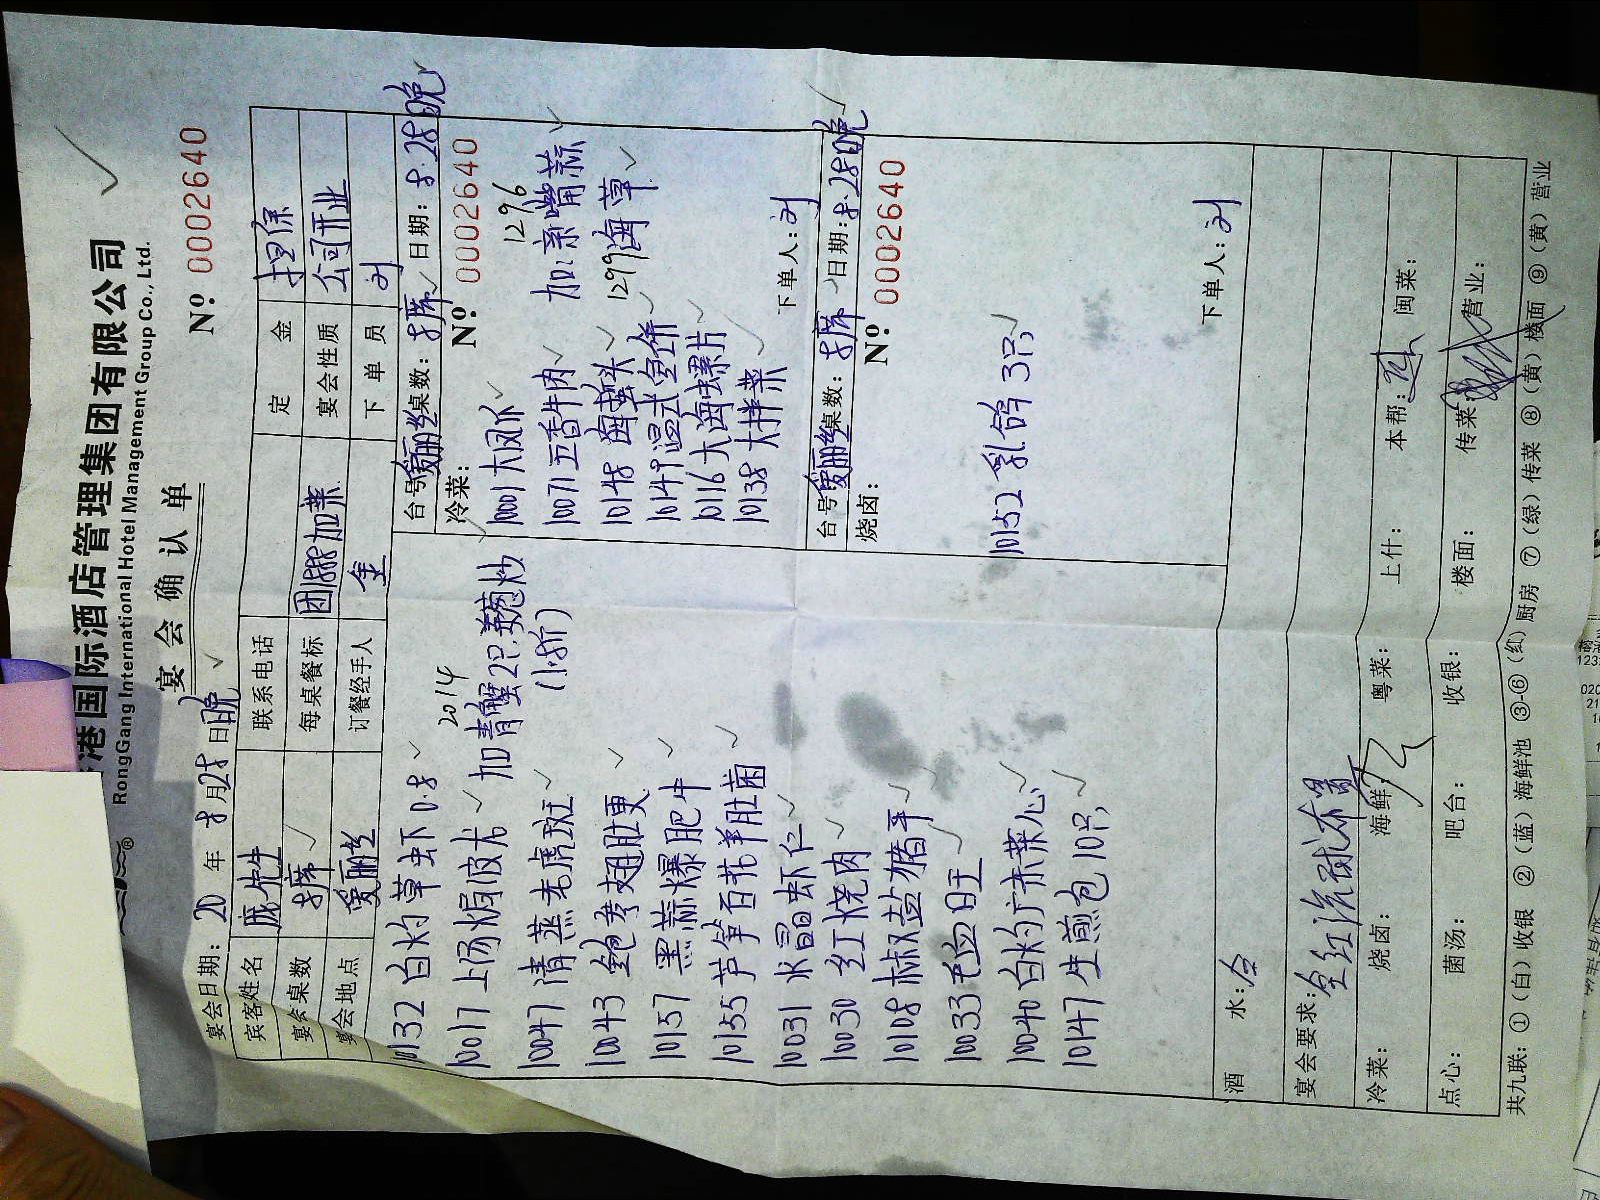 港国际酒店管理集团有限公司
RongGang International Hotel Management Group Co., Ltd.
宴会确认单
宴会日期: 20 年 8 月 28 日 晚
Nº: 0002640
宾客姓名 庞先生 联系电话 定金 担保
宴会桌数 才席 每桌餐标 团888加菜 宴会性质 公司开业
宴会地点 爱丽丝 订餐经手人 金 下单员 刘
10132 白灼草虾 0.8
10017 上汤焗波龙
2014
加青蟹2只
葱炒
(1.8斤)
10047 清蒸老虎斑
10043 鲍参翅肚更
10157 黑蒜爆肥牛
10155 芦笋百花羊肚菌
10031 水晶虾仁
10030 红烧肉
10108 椒盐猪手
10033 毛血旺
10040 白灼广东菜心
10147 生煎包 10只
台号 爱丽丝 桌数: 才席 日期: 8.28晚
冷菜:
Nº: 0002640
10001 大凤爪
10071 五香牛肉
10148 海蜇头
10149 温式鱼饼
10116 大海螺片
10138 大拌菜
1296
加: 亲嘴蒜
1299 海草
下单人: 刘
台号 爱丽丝 桌数: 才席 日期: 8.28晚
烧卤:
Nº: 0002640
10152 乳鸽 3只
下单人: 刘
酒 水:
宴会要求: 全红流球布置
冷菜: 烧卤: 海鲜: 粤菜: 上什: 本帮: 闽菜:
点心: 菌汤: 吧台: 收银: 楼面: 传菜 营业:
共九联: ①(白)收银 ②(蓝)海鲜池 ③-⑥(红)厨房 ⑦(绿)传菜 ⑧(黄)楼面 ⑨(黄)营业